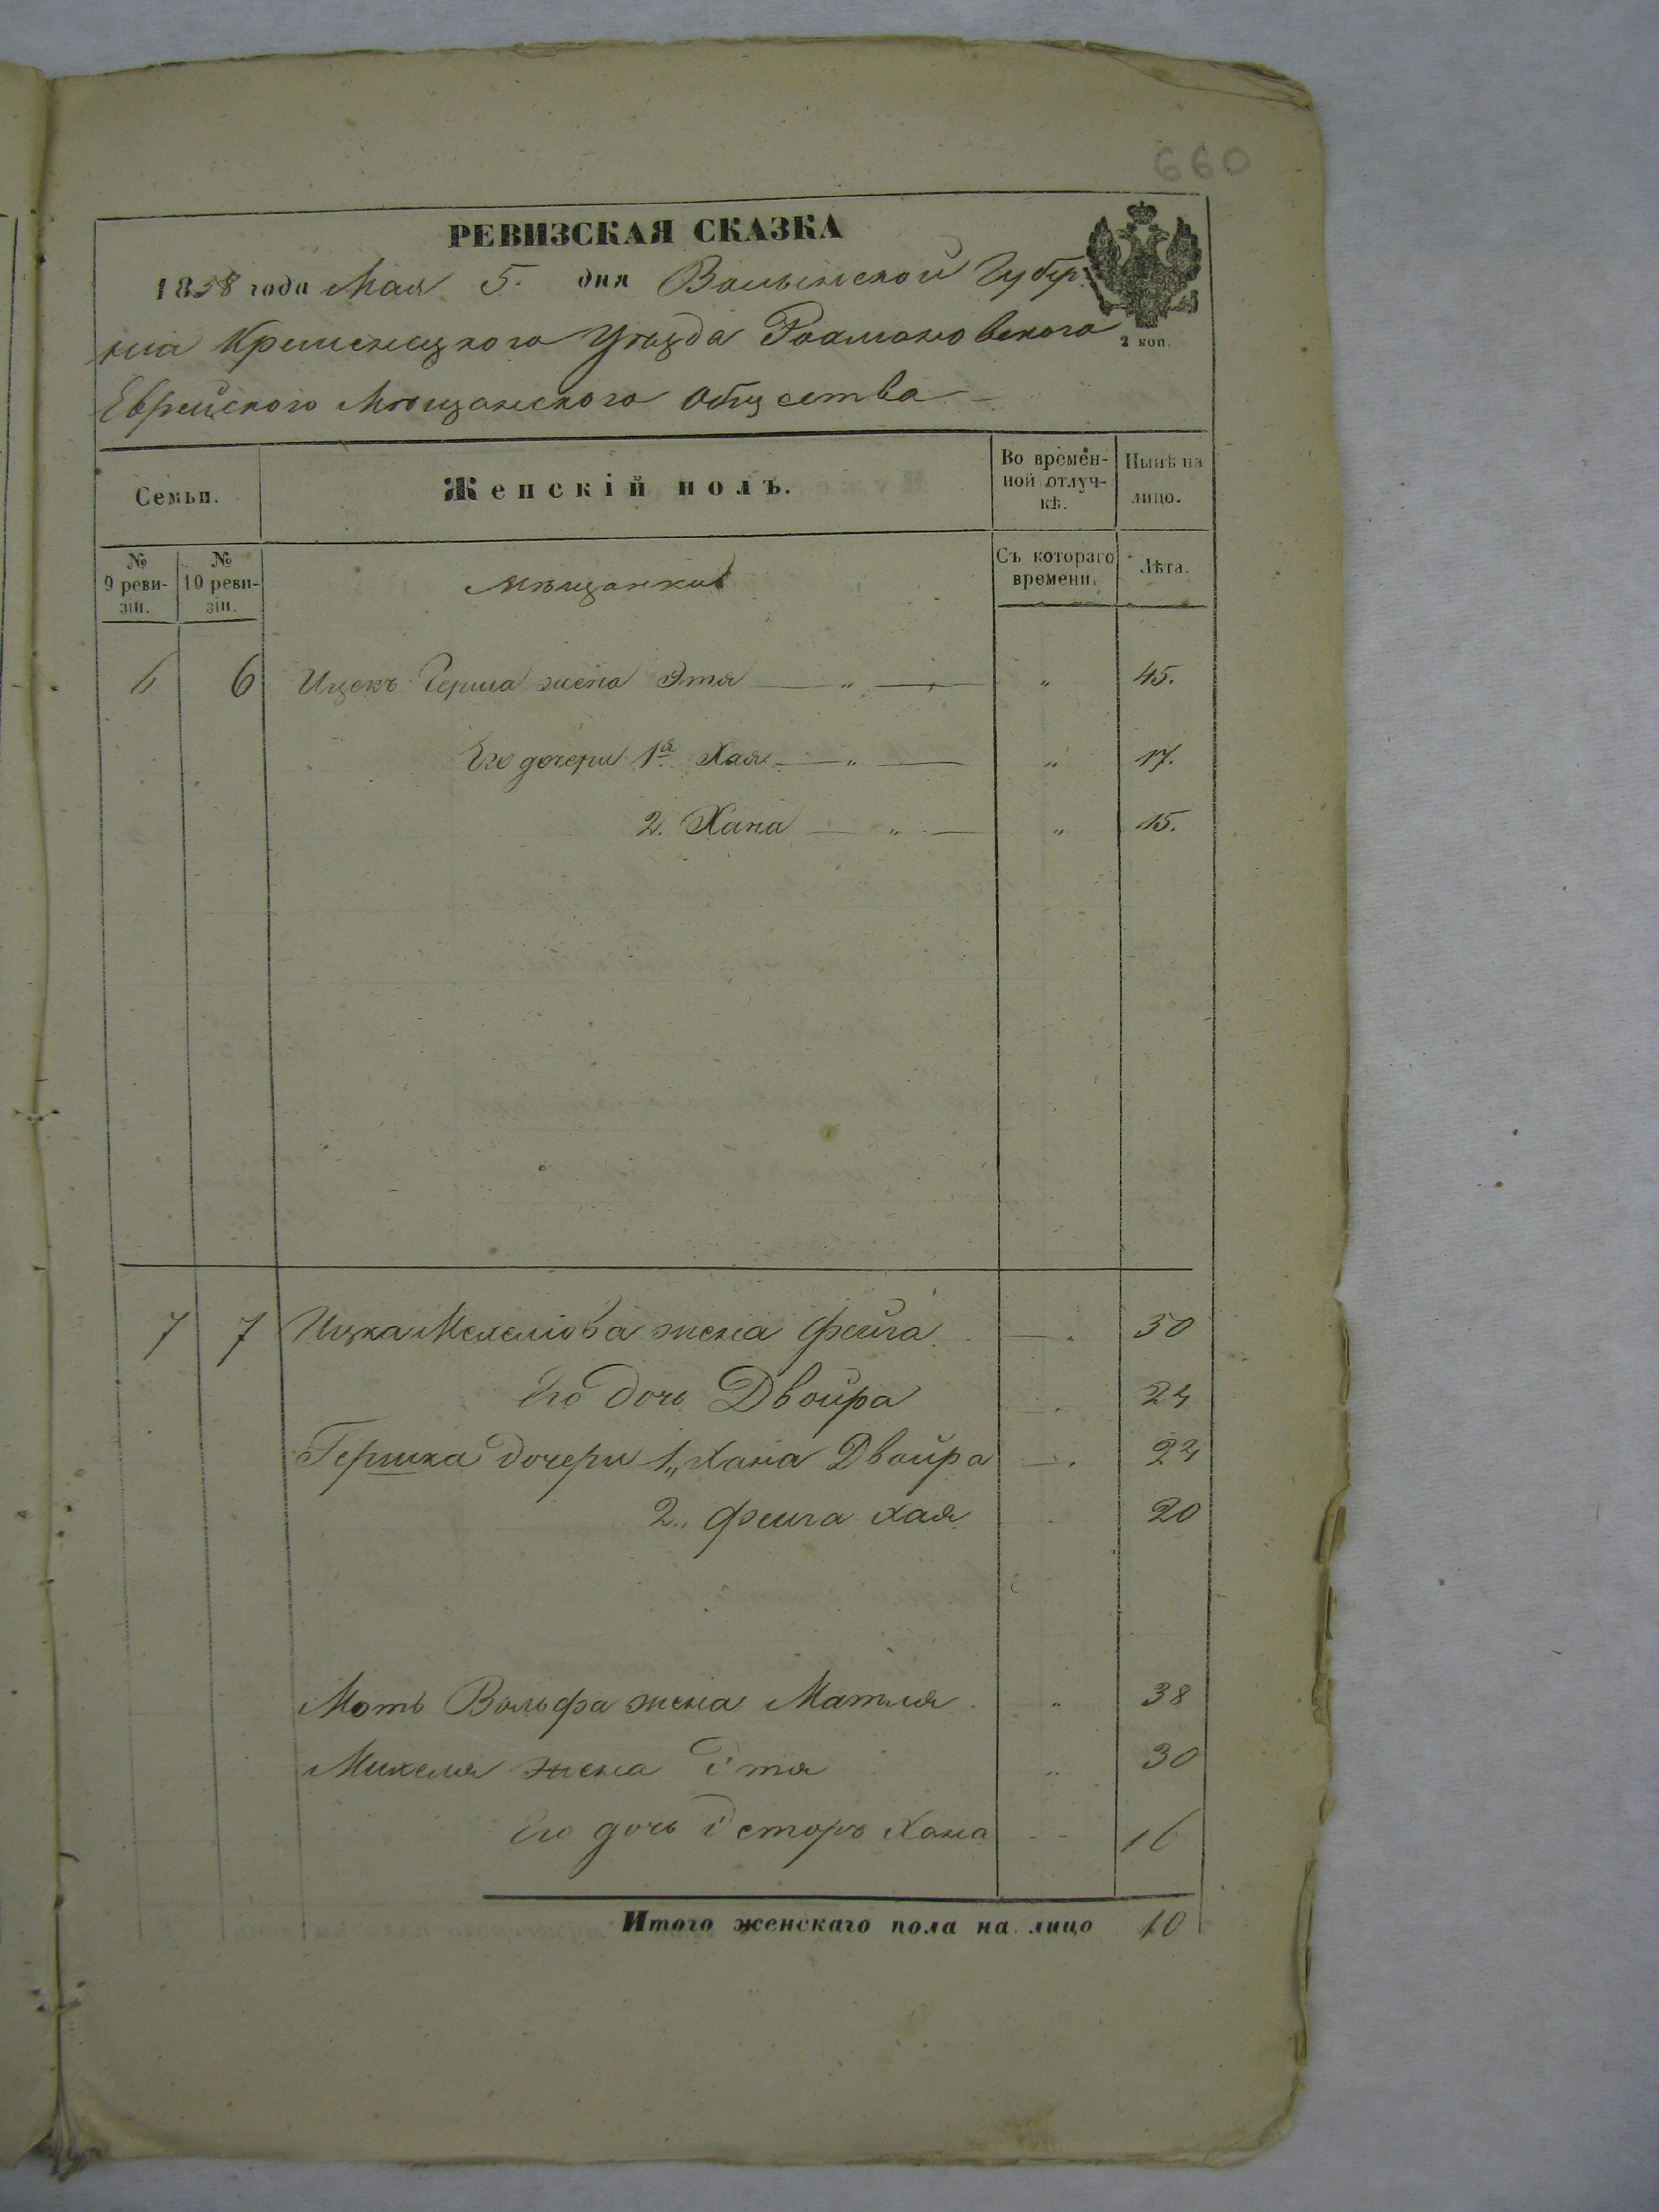 660
РЕВИЗСКАЯ СКАЗКА
1858 года Мая 5. дня Волынской Губер
ніа Кременецкого Уѣзда Рахмановского
2 коп.
Еврейского Мѣщанского Общества
Семьи.
Женскій полъ.
Во времен-
ной отлуч-
кѣ.
Нынѣ на
лицо.
№
9 реви-
зіи.
№
10 реви-
зіи.
Мѣщанки
Съ котораго
времени.
Лѣта.
6 6 Ицекъ Герша жена Этя — „ — „ 45.
Его дочери 1я Хая — „ — „ 17.
2. Хана — „ — „ 15.
7 7 Ицка Мехелiова жена Фейга — „ 50
Его дочь Двойра „ 24
Гершка дочери 1„ Хана Двойра — „ 24
2„ Фейга Хая 20
Моть Вольфа жена Матля „ 38
Михеля жена Этя „ 30
Его дочь Эстеръ Хана - - 16
Итого женскаго пола на лицо 10